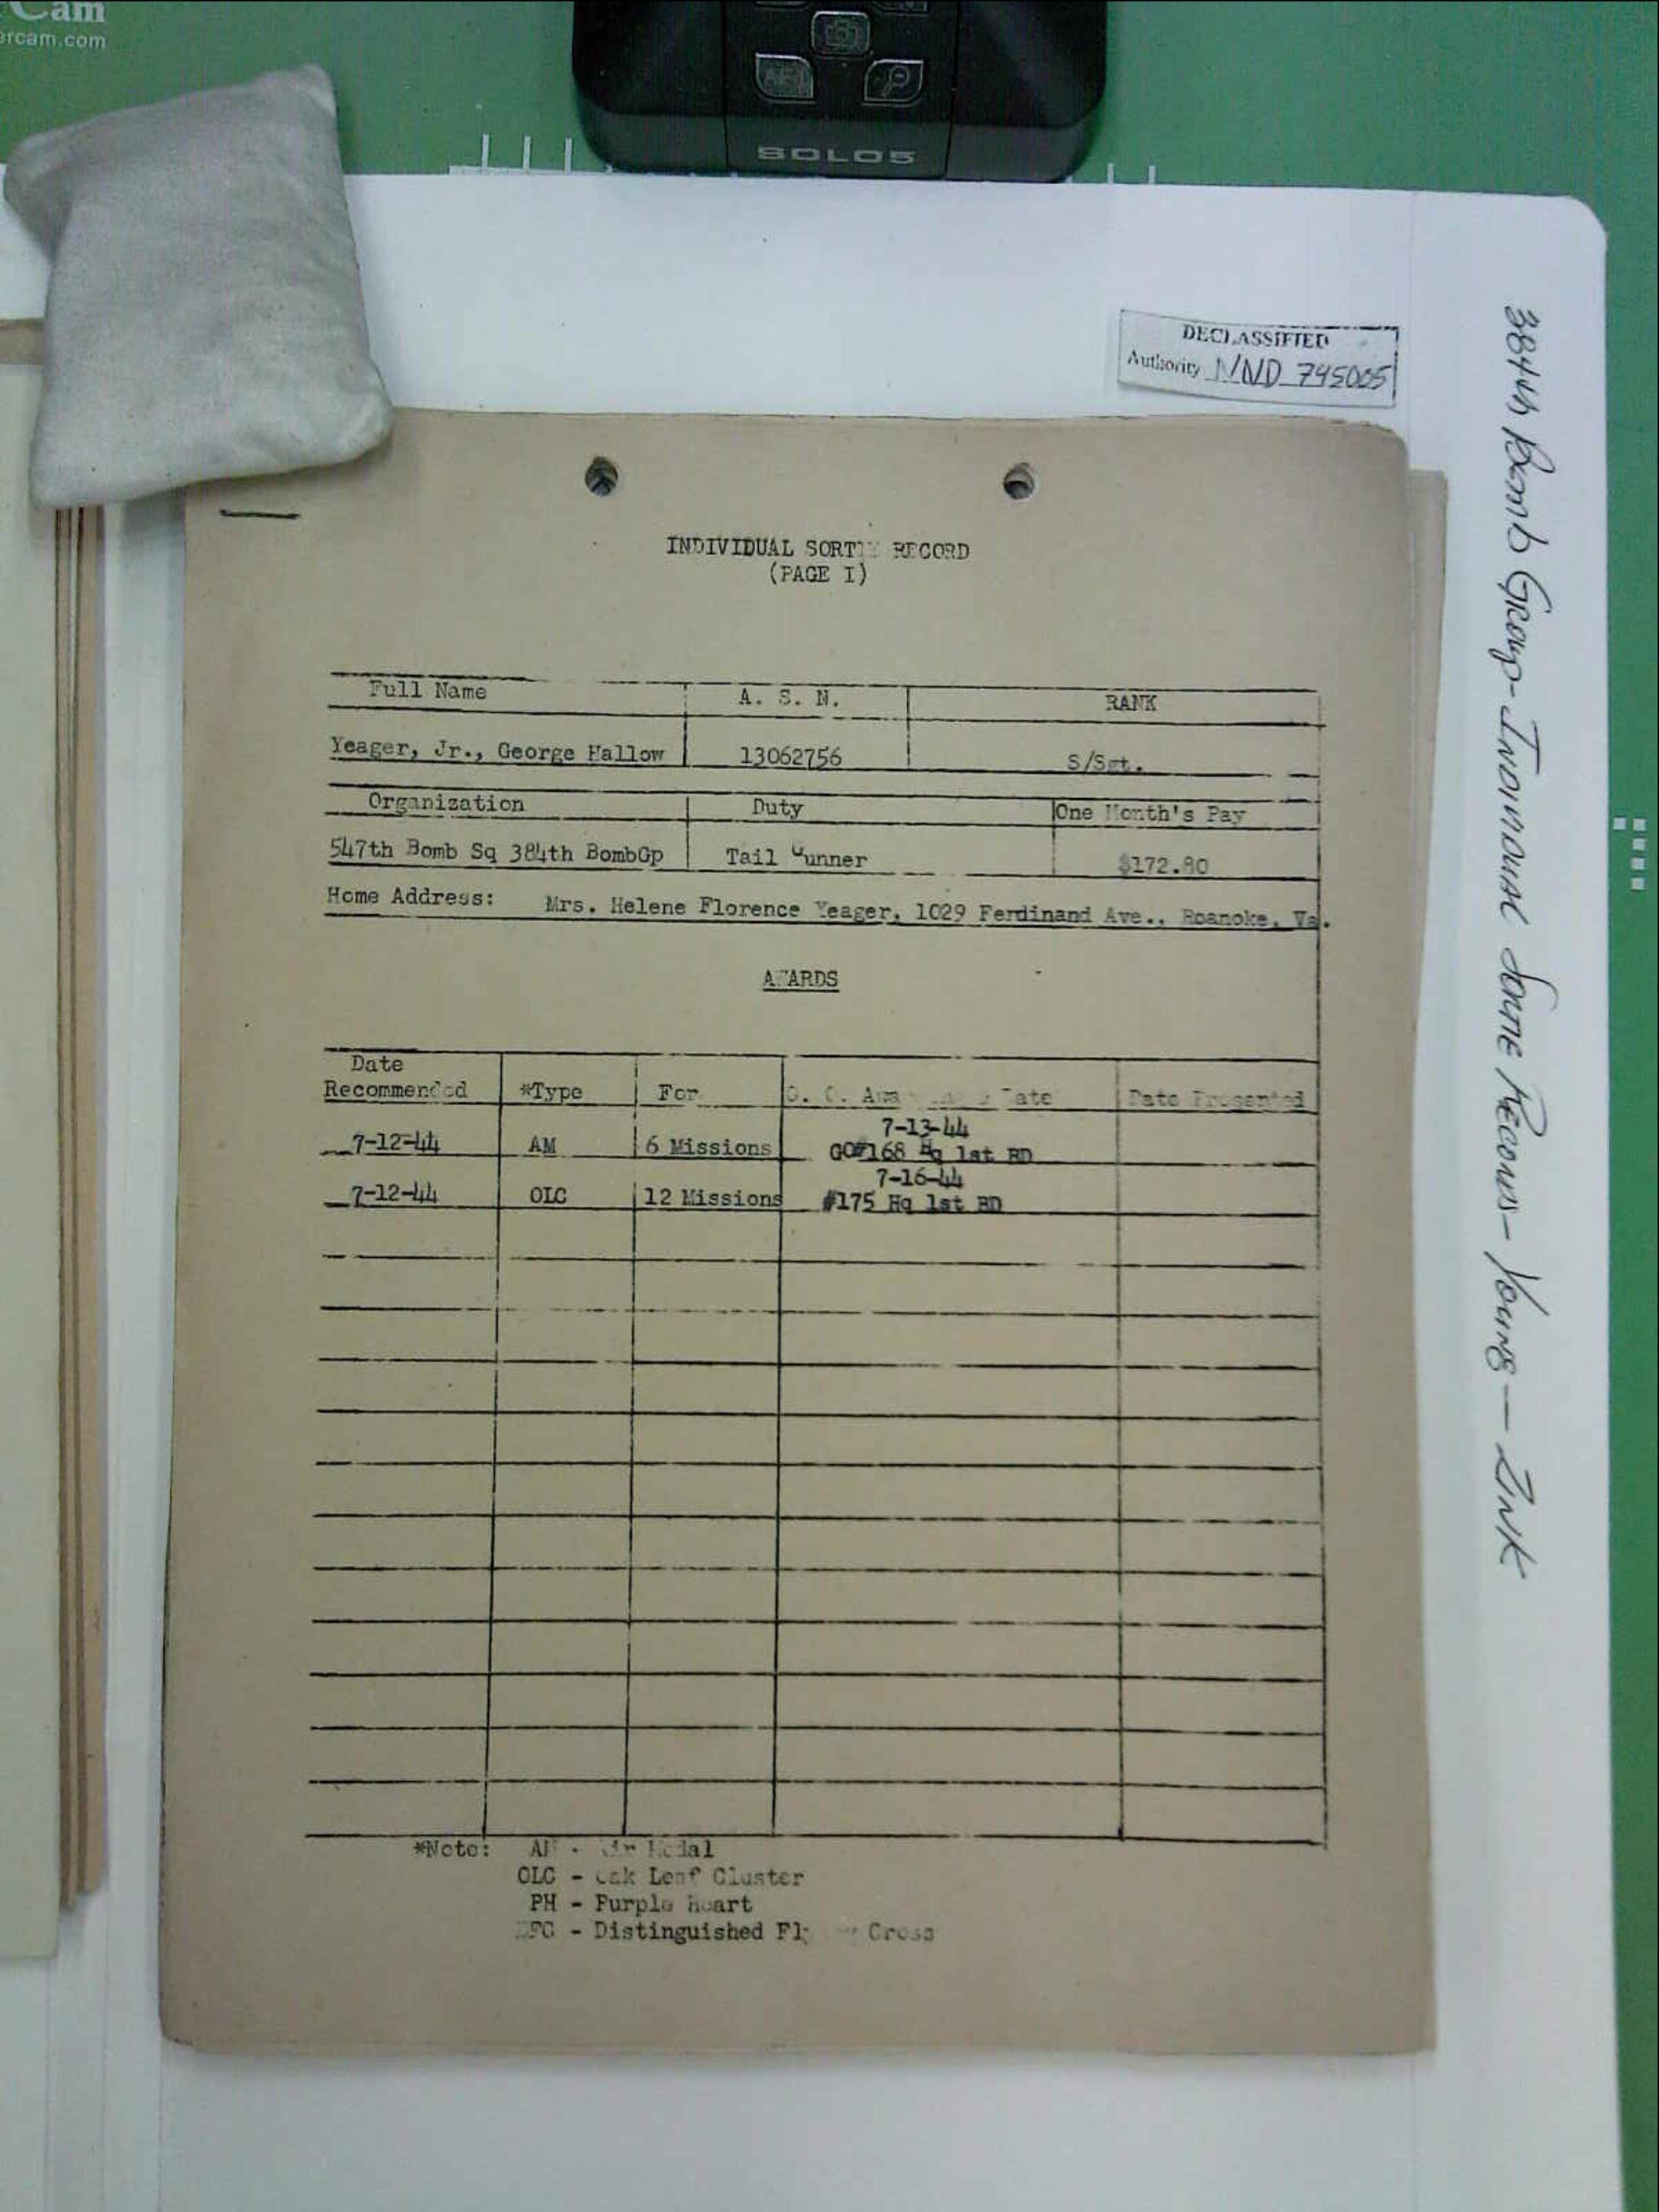 Cam
ercam.com
SOLO5
DECLASSIFIED
Authority NND 745005
INDIVIDUAL SORT RECORD
(PAGE I)
Full Name A. S. N. RANK
Yeager, Jr., George Hallow 13062756 S/Sgt.
Organization Duty One Month's Pay
547th Bomb Sq 384th BombGp Tail Gunner $172.80
Home Address: Mrs. Helene Florence Yeager, 1029 Ferdinand Ave., Roanoke, Va.
AWARDS
Date
Recommended *Type For G. O. Date Date Presented
7-13-44
7-12-44 AM 6 Missions GO#168 Hq 1st BD
7-16-44
7-12-44 OLC 12 Missions #175 Hq 1st BD
*Note: AM - Air Medal
OLC - Oak Leaf Cluster
PH - Purple Heart
DFC - Distinguished Cross
384th Bomb Group-Individual Sortie Records- Young — Zink